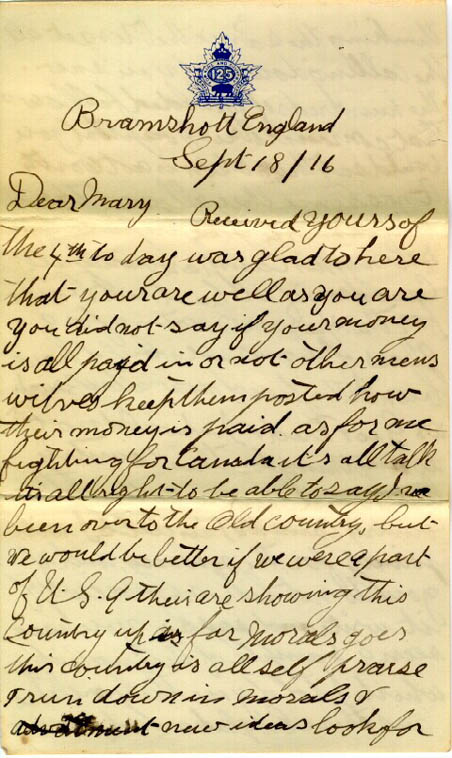 125
Bramshott England
Sept 18/16
Dear Mary
Received yours of
the 4th to day was glad to here
that your are well as you are
you did not say if your money
is all payd in or not other mens
wifves keep them posted how
their money is paid. as for me
fighting for Canada its all talk
its all right to be able to say I
been over to the Old country, but
we would be better if we were a part
of U.S.A their are showing this
Country up as far Morals goes
this country is all self praise
& run down in morals &
new ideas look for